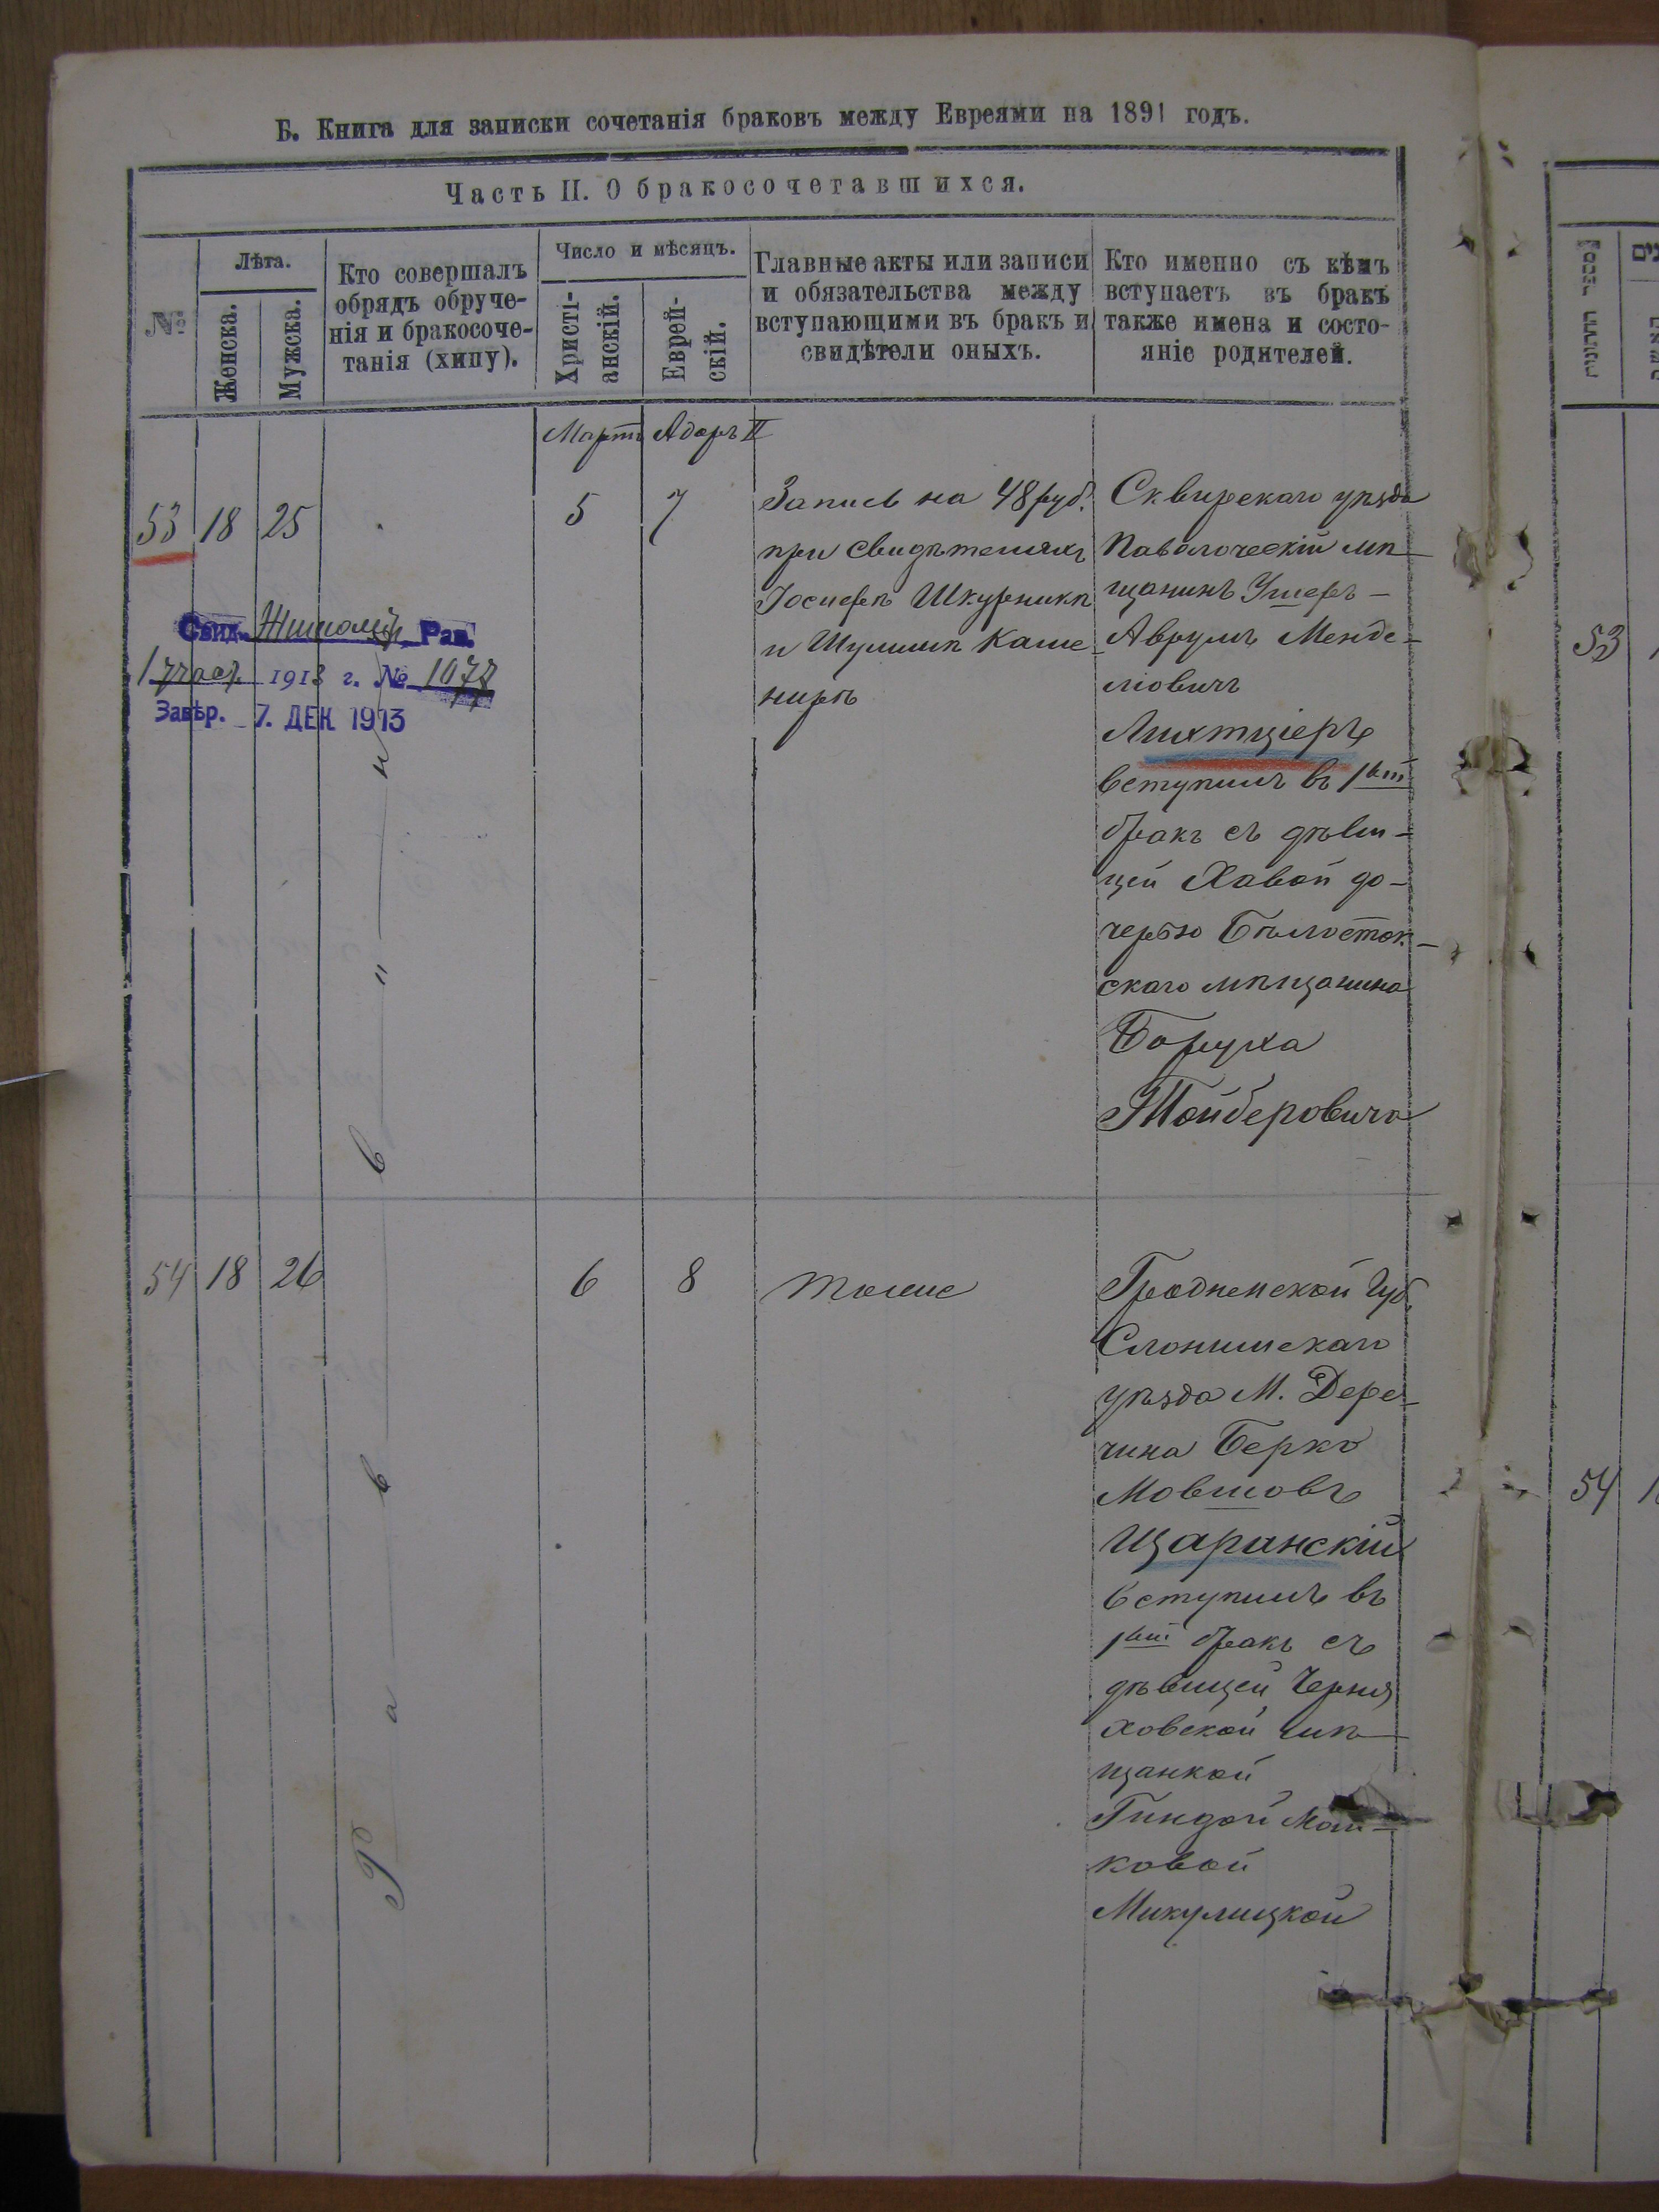 Б. Книга для записки сочетанія браковъ между Евреями на 1891 годъ.
Часть II. О бракосочетавшихся.
№
Лѣта.
Женска.
Мужска.
Кто совершалъ
обрядъ обруче-
нія и бракосоче-
танія (хипу).
Число и мѣсяцъ.
Христі-
анскій.
Еврей-
скій.
Главные акты или записи
и обязательства между
вступающими въ бракъ и
свидѣтели оныхъ.
Кто именно съ кѣмъ
вступаетъ въ бракъ
также имена и состо-
яніе родителей.
Мартъ
Адоръ II
53
18
25
5
7
Запись на 48 руб.
при свидѣтеляхъ
Іосифѣ Шкурникѣ
и Шулимѣ Каме-
нирѣ
Сквирскаго уѣзда
Паволоческій мѣ-
щанинъ Ушеръ-
Аврумъ Менде-
лiовичъ
Лихтціеръ
вступилъ въ 1вый
бракъ съ дѣви-
цей Хавой до-
черью Бѣлосток-
скаго мѣщанина
Боруха
Тойберовича
Свид. Житомір. Рав.
1 част. 1913 г. № 1072
Завѣр. 7. ДЕК 1913
Р а в в и н
54
18
26
6
8
тоже
Гродненской Губ.
Слонимскаго
уѣзда М. Дере-
чина Берко
Мовшовъ
Щаранскій
вступилъ въ
1вый бракъ съ
дѣвицей Черня
ховской мѣ-
щанкой
Гиндой Мош-
ковой
Микулицкой
מספר החתונות
53
54